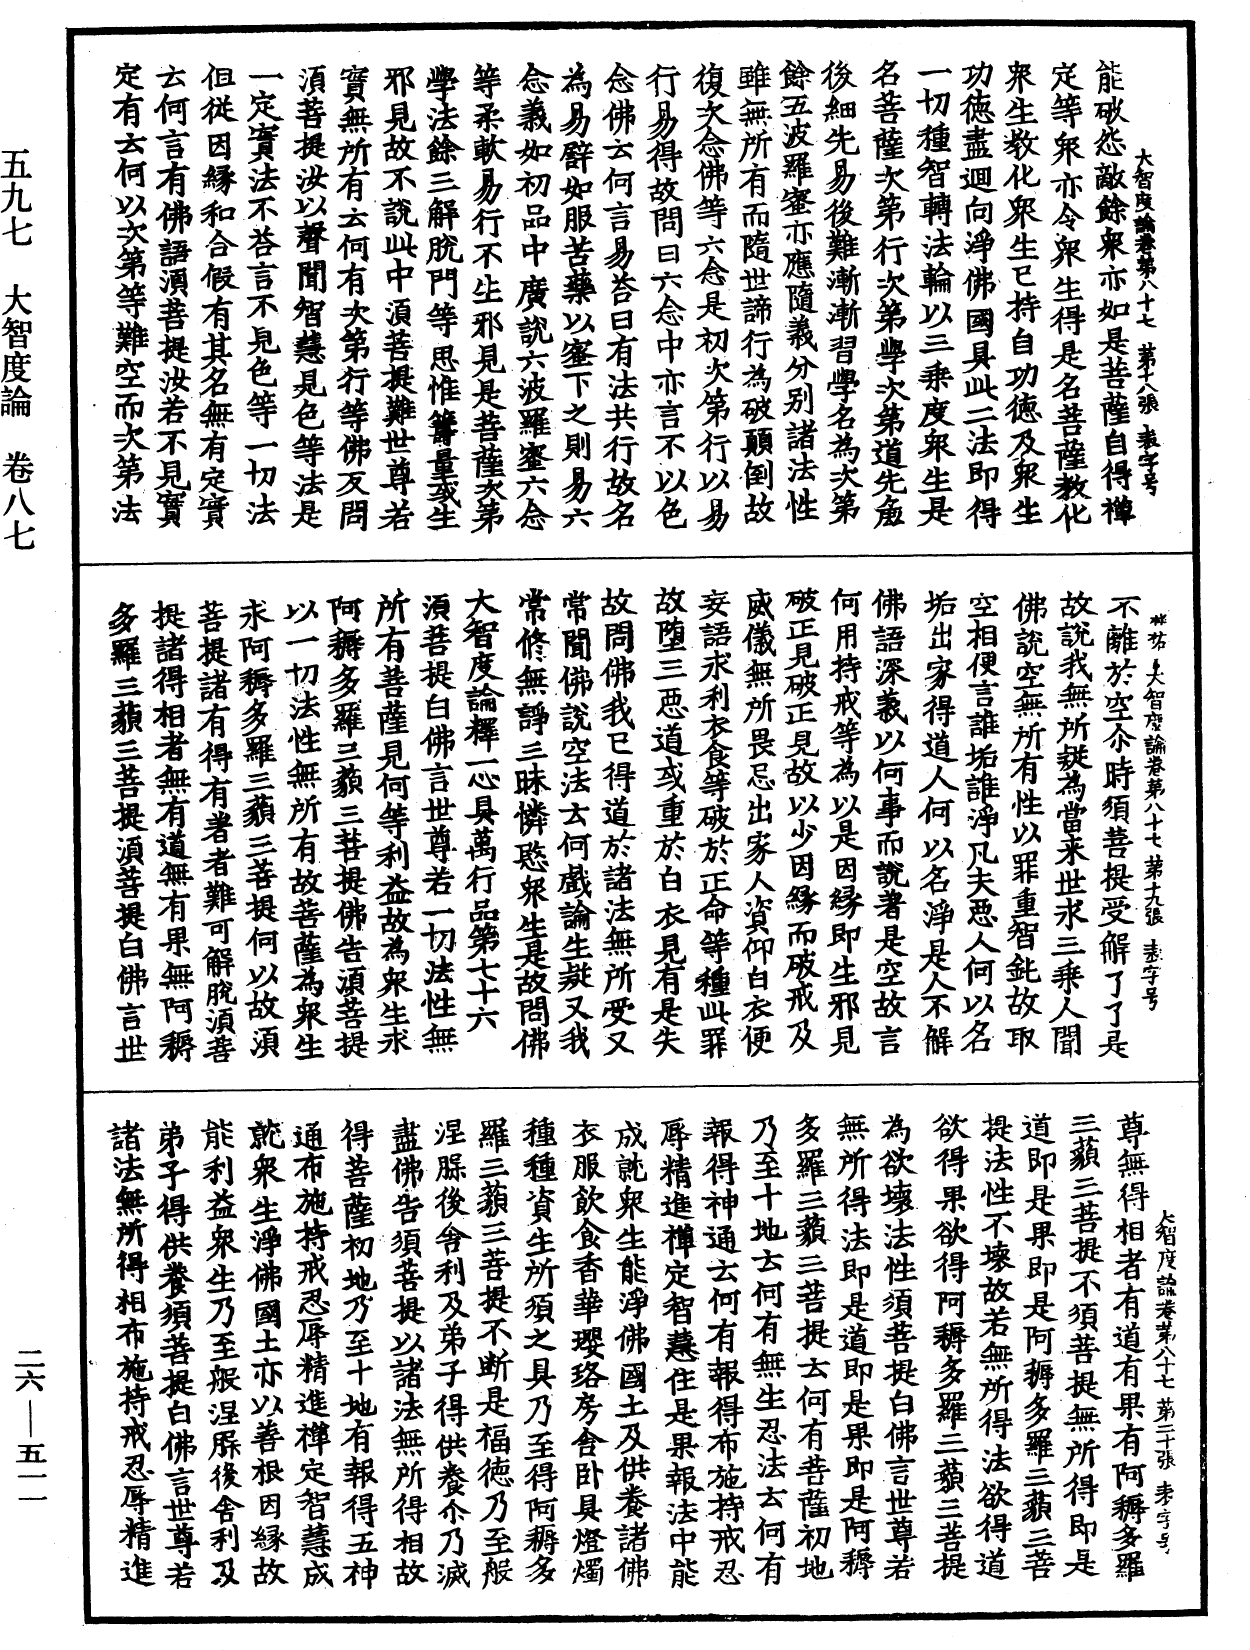 大智度論卷第八十七　第十八張　表字号
能破怨敵餘衆亦如是菩薩自得禪
定等衆亦令衆生得是名菩薩教化
衆生教化衆生已持自功德及衆生
功德盡迴向淨佛國具此二法即得
一切種智轉法輪以三乘度衆生是
名菩薩次第行次第學次第道先麁
後細先易後難漸漸習學名為次第
餘五波羅蜜亦應隨義分別諸法性
雖無所有而隨世諦行為破顛倒故
復次念佛等六念是初次第行以易
行易得故問曰六念中亦言不以色
念佛云何言易荅曰有法共行故名
為易譬如服苦藥以蜜下之則易六
念義如初品中廣說六波羅蜜六念
等柔軟易行不生邪見是菩薩次第
學法餘三解脫門等思惟籌量或生
邪見故不說此中須菩提難世尊若
實無所有云何有次第行等佛反問
須菩提汝以聲聞智慧見色等法是
一定實法不荅言不見色等一切法
但從因緣和合假有其名無有定實
云何言有佛語須菩提汝若不見實
定有云何以次第等難空而次第法
大智度論卷第八十七　第十九張　表字号
不離於空尒時須菩提受解了了是
故說我無所疑為當来世求三乘人聞
佛說空無所有性以罪重智鈍故取
空相便言誰垢誰淨凡夫惡人何以名
垢出家得道人何以名淨是人不解
佛語深義以何事而說著是空故言
何用持戒等為以是因緣即生邪見
破正見破正見故以少因緣而破戒及
威儀無所畏忌出家人資仰白衣便
妄語求利衣食等破於正命等種此罪
故墮三惡道或重於白衣見有是失
故問佛我已得道於諸法無所受又
常聞佛說空法云何戲論生疑又我
常修無諍三昧憐愍衆生是故問佛
大智度論釋一心具萬行品第七十六
須菩提白佛言世尊若一切法性無
所有菩薩見何等利益故為衆生求
阿耨多羅三藐三菩提佛告須菩提
以一切法性無所有故菩薩為衆生
求阿耨多羅三藐三菩提何以故須
菩提諸有得有著者難可解脫須菩
提諸得相者無有道無有果無阿耨
多羅三藐三菩提須菩提白佛言世
大智度論卷第八十七　第二十張　表字号
尊無得相者有道有果有阿耨多羅
三藐三菩提不須菩提無所得即是
道即是果即是阿耨多羅三藐三菩
提法性不壞故若無所得法欲得道
欲得果欲得阿耨多羅三藐三菩提
為欲壞法性須菩提白佛言世尊若
無所得法即是道即是果即是阿耨
多羅三藐三菩提云何有菩薩初地
乃至十地云何有無生忍法云何有
報得神通云何有報得布施持戒忍
辱精進禪定智慧住是果報法中能
成就衆生能淨佛國土及供養諸佛
衣服飲食香華瓔珞房舍卧具燈燭
種種資生所須之具乃至得阿耨多
羅三藐三菩提不断是福德乃至般
涅槃後舍利及弟子得供養尒乃滅
盡佛告須菩提以諸法無所得相故
得菩薩初地乃至十地有報得五神
通布施持戒忍辱精進禪定智慧成
就衆生淨佛國土亦以善根因緣故
能利益衆生乃至般涅槃後舍利及
弟子得供養須菩提白佛言世尊若
諸法無所得相布施持戒忍辱精進
五九七　大智度論　卷八七
二六—五一一